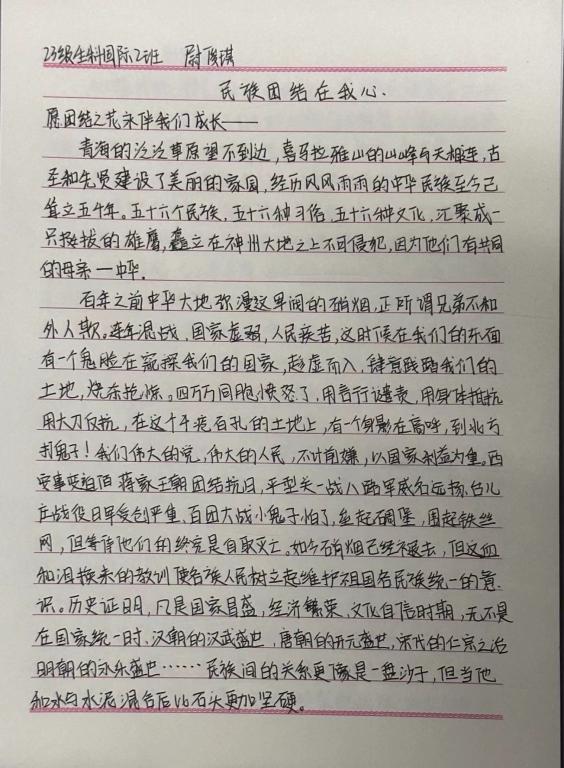 23级生科国际2班 尉俊琪
民族团结在我心.
愿团结之花永伴我们成长——
青海的泛泛草原望不到边,喜马拉雅山的山峰与天相连,古
至和先贤建设了美丽的家园,经历风风雨雨的中华民族至今已
耸立五千年。五十六个民族,五十六种习俗,五十六种文化,汇聚成一
只挺拔的雄鹰,矗立在神州大地之上不可侵犯,因为他们有共同
的母亲一中华.
百年之前中华大地弥漫这军阀的硝烟,正所谓兄弟不和
外人欺。连年混战,国家虚弱,人民疾苦,这时候在我们的东面
有一个鬼脸在窥探我们的国家,趁虚而入,肆意践踏我们的
土地,烧杀抢掠。四万万同胞愤怒了,用言行谴责,用身体抵抗
用大刀反抗,在这个千疮百孔的土地上,有一个身影在高呼,到北方
打鬼子!我们伟大的党,伟大的人民,不计前嫌,以国家利益为重。西
安事变迫使蒋家王朝团结抗日,平型关一战八路军威名远扬,台儿
庄战役日军受创严重,百团大战小鬼子怕了,垒起碉堡,围起铁丝
网,但等待他们的终究是自取灭亡。如今硝烟已经褪去,但这血
和泪换来的教训使各族人民树立起维护祖国各民族统一的意
识。历史证明,凡是国家昌盛,经济繁荣、文化自信时期,无不是
在国家统一时.汉朝的汉武盛世,唐朝的开元盛世,宋代的仁宗之治
明朝的永乐盛世……民族间的关系更像是一盘沙子,但当他
和水与水泥混合后比石头更加坚硬。